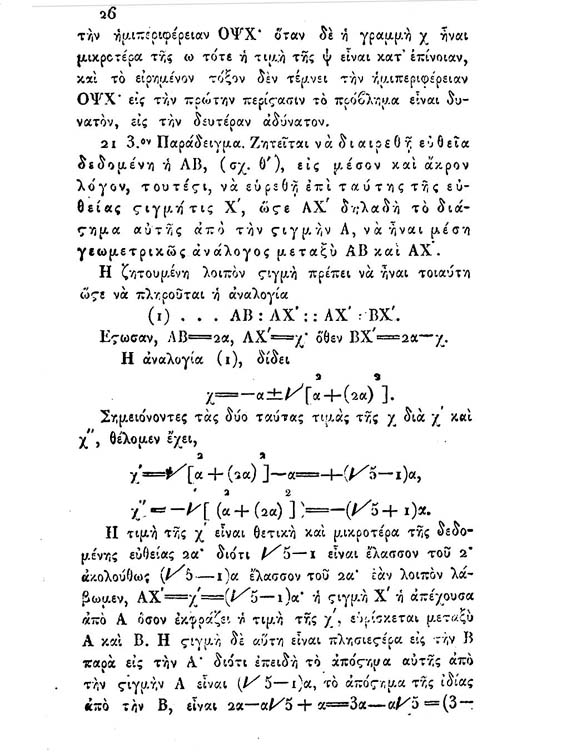 26
τὴν ἡμιπεριφέρειαν ΟΨΧ· ὅταν δὲ ἡ γραμμὴ χ ἦναι
μικροτέρα τῆς ω τότε ἡ τιμὴ τῆς ψ εἶναι κατ' ἐπίνοιαν,
καὶ τὸ εἰρημένον τόξον δὲν τέμνει τὴν ἡμιπεριφέρειαν
ΟΨΧ· εἰς τὴν πρώτην περίϛασιν τὸ πρόβλημα εἶναι δυ-
νατὸν, εἰς τὴν δευτέραν ἀδύνατον.
21 3.ον Παράδειγμα. Ζητεῖται νὰ διαιρεθῇ εὐθεῖα
δεδομένη ἡ ΑΒ, (σχ. θ'), εἰς μέσον καὶ ἄκρον
λόγον, τουτέϛι, νὰ εὑρεθῇ ἐπὶ ταύτης τῆς εὐ-
θείας ϛιγμήτις Χ', ὥϛε ΑΧ' δηλαδὴ τὸ διά-
ϛημα αὐτῆς ἀπὸ τὴν ϛιγμὴν Α, νὰ ἦναι μέση
γεωμετρικῶς ἀνάλογος μεταξὺ ΑΒ καὶ ΑΧ'.
Ἡ ζητουμένη λοιπὸν ϛιγμὴ πρέπει νὰ ἦναι τοιαύτη
ὥϛε νὰ πληροῦται ἡ ἀναλογία
(1) . . . ΑΒ : ΑΧ' :: ΑΧ' : ΒΧ'.
Εϛωσαν, ΑΒ=2α, ΑΧ'=χ· ὅθεν ΒΧ'=2α—χ.
Ἡ ἀναλογία (1), δίδει
χ=—α±√[α²+(2α)²].
Σημειόνοντες τὰς δύο ταύτας τιμὰς τῆς χ διὰ χ' καὶ
χ'', θέλομεν ἔχει,
χ'=√[α²+(2α)²]—α=+(√5—1)α,
χ''=—√[(α²+(2α)²])=—(√5+1)α.
Ἡ τιμὴ τῆς χ' εἶναι θετικὴ καὶ μικροτέρα τῆς δεδο-
μένης εὐθείας 2α· διότι √5—1 εἶναι ἔλασσον τοῦ 2·
ἀκολούθως (√5—1)α ἔλασσον τοῦ 2α· ἐὰν λοιπὸν λά-
βωμεν, ΑΧ'=χ'=(√5—1)α· ἡ ϛιγμὴ Χ' ἡ ἀπέχουσα
ἀπὸ Α ὅσον ἐκφράζει ἡ τιμὴ τῆς χ', εὑρίσκεται μεταξὺ
Α καὶ Β. Ἡ ϛιγμὴ δὲ αὕτη εἶναι πλησιεϛέρα εἰς τὴν Β
παρὰ εἰς τὴν Α· διότι ἐπειδὴ τὸ ἀπόϛημα αὐτῆς ἀπὸ
τὴν ϛιγμὴν Α εἶναι (√5—1)α, τὸ ἀπόϛημα τῆς ἰδίας
ἀπὸ τὴν Β, εἶναι 2α—α√5+α=3α—α√5=(3—